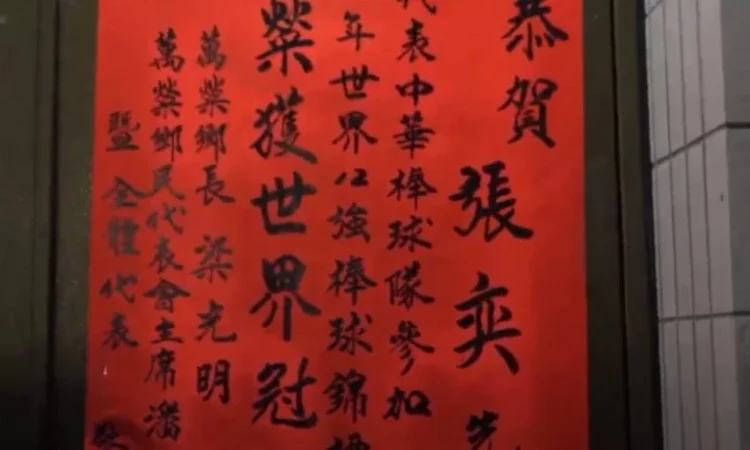 恭賀 張奕 先
代表中華棒球隊參加
年世界12強棒球錦標
榮獲世界冠
萬榮鄉長 梁光明
萬榮鄉民代表會主席潘
暨全體代表